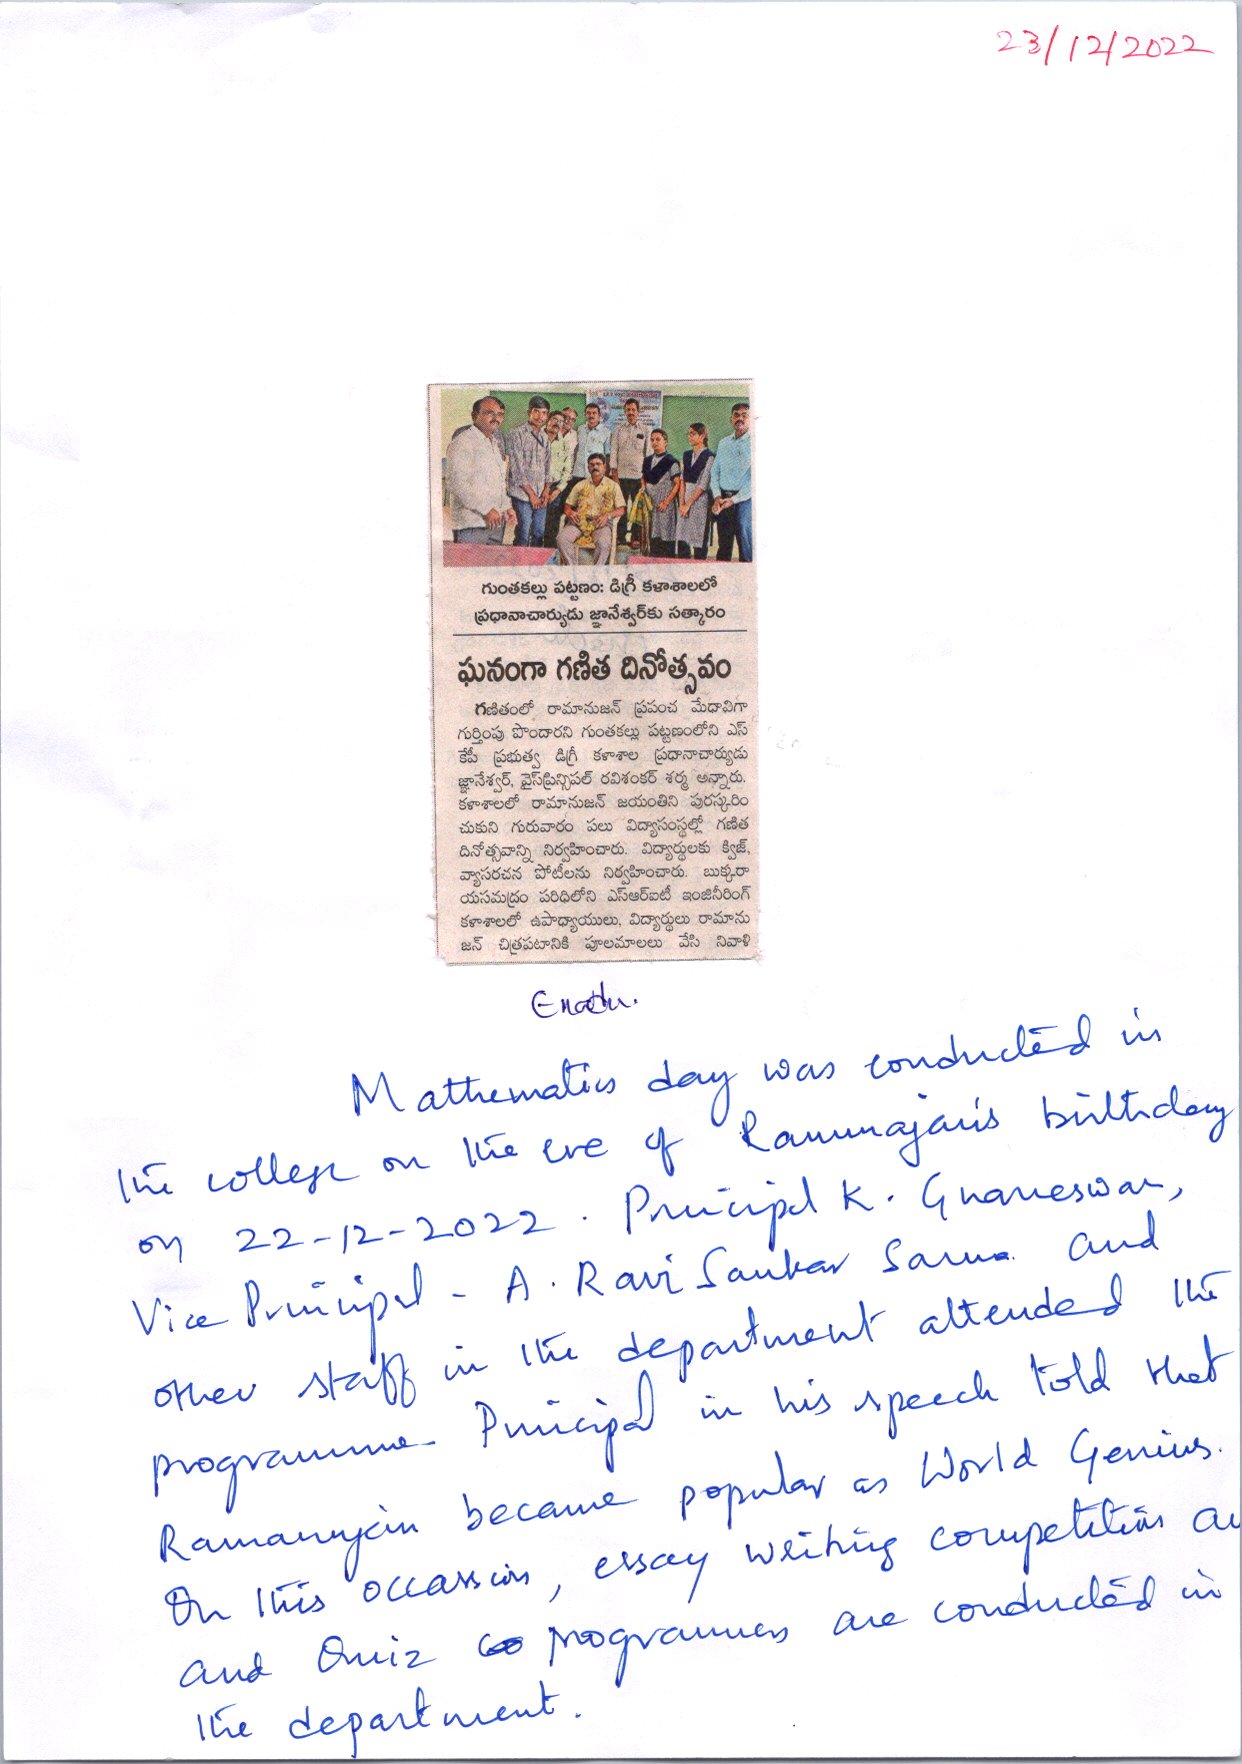 23/12/2022
గుంతకల్లు పట్టణం: డిగ్రీ కళాశాలలో
ప్రధానాచార్యుడు జ్ఞానేశ్వర్‌కు సత్కారం
ఘనంగా గణిత దినోత్సవం
గణితంలో రామానుజన్ ప్రపంచ మేధావిగా
గుర్తింపు పొందారని గుంతకల్లు పట్టణంలోని ఎస్
కేపీ ప్రభుత్వ డిగ్రీ కళాశాల ప్రధానాచార్యుడు
జ్ఞానేశ్వర్, వైస్‌ప్రిన్సిపల్ రవిశంకర్ శర్మ అన్నారు.
కళాశాలలో రామానుజన్ జయంతిని పురస్కరిం
చుకుని గురువారం పలు విద్యాసంస్థల్లో గణిత
దినోత్సవాన్ని నిర్వహించారు. విద్యార్థులకు క్విజ్,
వ్యాసరచన పోటీలను నిర్వహించారు. బుక్కరా
యసముద్రం పరిధిలోని ఎస్ఆర్ఐటీ ఇంజినీరింగ్
కళాశాలలో ఉపాధ్యాయులు, విద్యార్థులు రామాను
జన్ చిత్రపటానికి పూలమాలలు వేసి నివాళి
Enadu.
Mathematics day was conducted in
the college on the eve of Ramunajan's birthday
on 22-12-2022. Principal K. Gnaneswar,
Vice Principal - A. Ravi Sankar Sarma and
other staff in the department attended the
programme. Principal in his speech told that
Ramanujan became popular as World Genius.
On this occassion, essay writing competition an
and Quiz programmes are conducted in
the department.